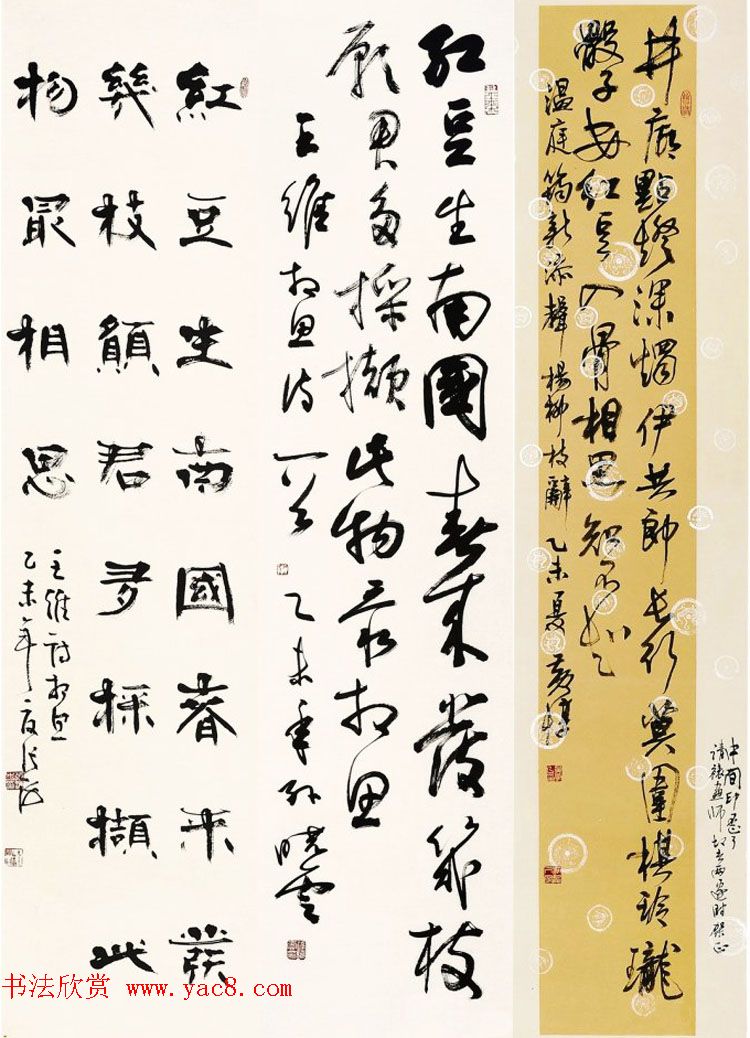 井底點燈深燭伊共郎長行莫圍棋玲瓏
骰子安紅豆入骨相思知不知
温庭筠新添聲楊柳枝辭乙未夏
中間印忘了
請裱畫師
紅豆生南國春來發幾枝
願君多採擷此物最相思
王維相思詩一首 乙未年孙曉雲
紅豆生南國春来發
幾枝願君多採擷此
物最相思
王維詩相思
乙未年
书法欣赏 www.yac8.com